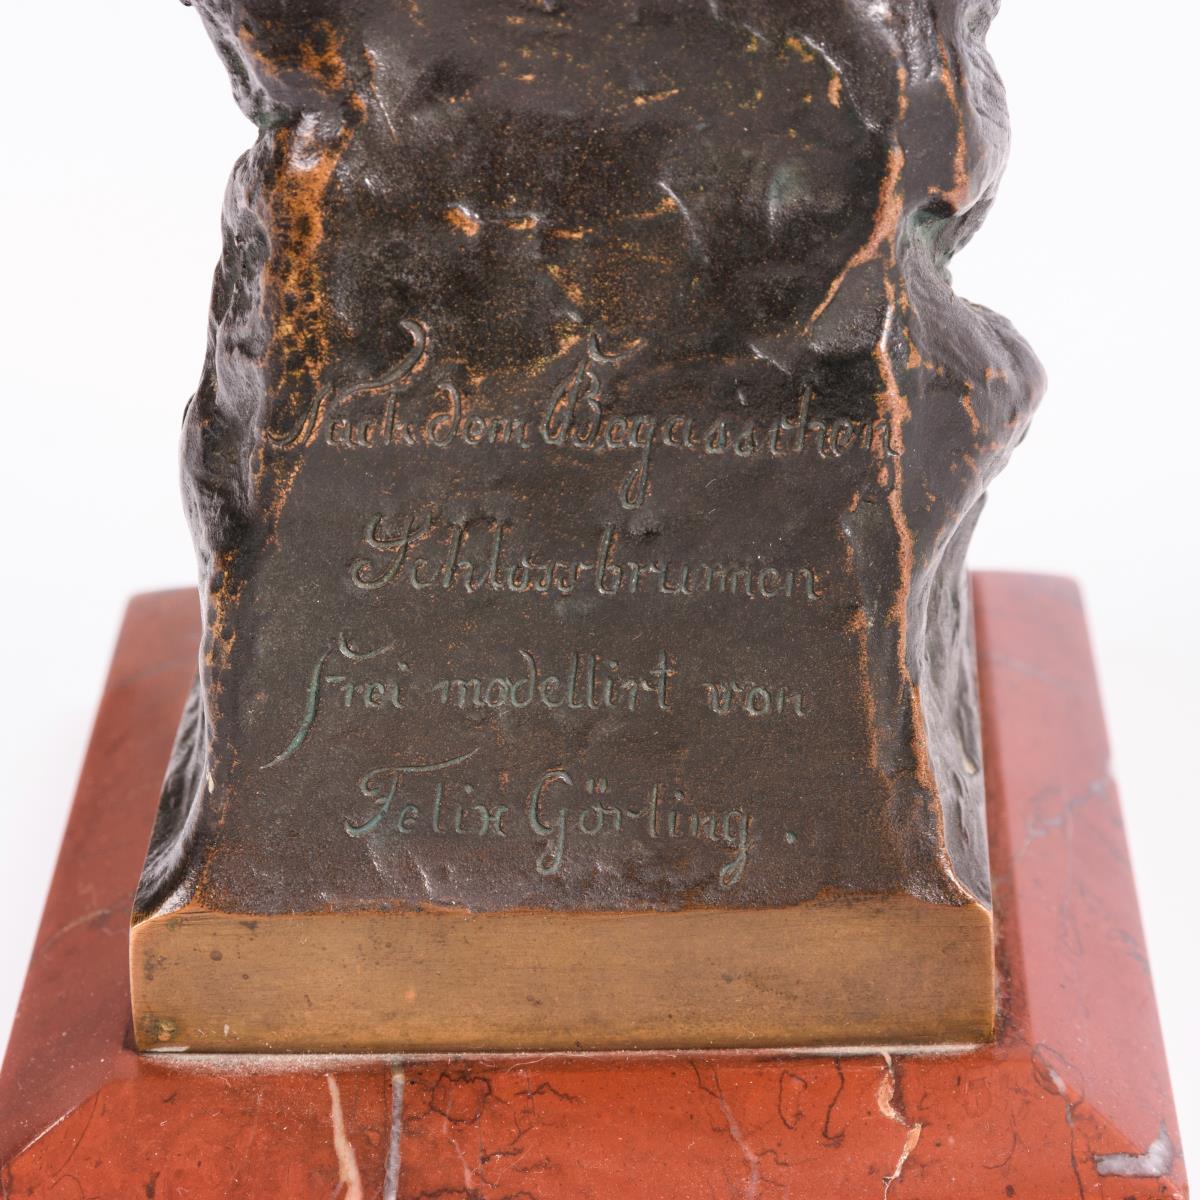 Nach dem Begas'schen
Schlossbrunnen
Frei modellirt von
Felix Görling.